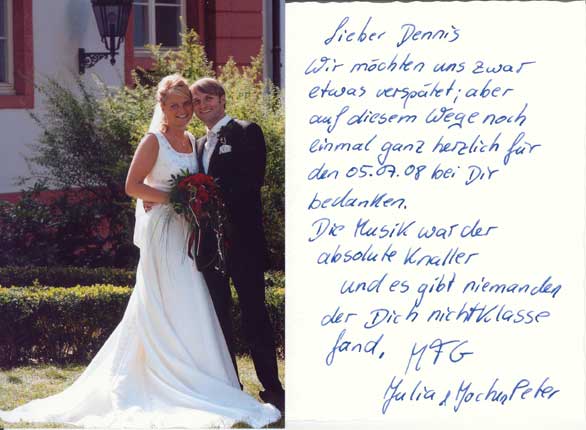 Lieber Dennis
Wir möchten uns zwar
etwas verspätet; aber
auf diesem Wege noch
einmal ganz herzlich für
den 05.07.08 bei Dir
bedanken.
Die Musik war der
absolute Knaller
und es gibt niemanden
der Dich nicht Klasse
fand. MFG
Julia & Jochen Peter